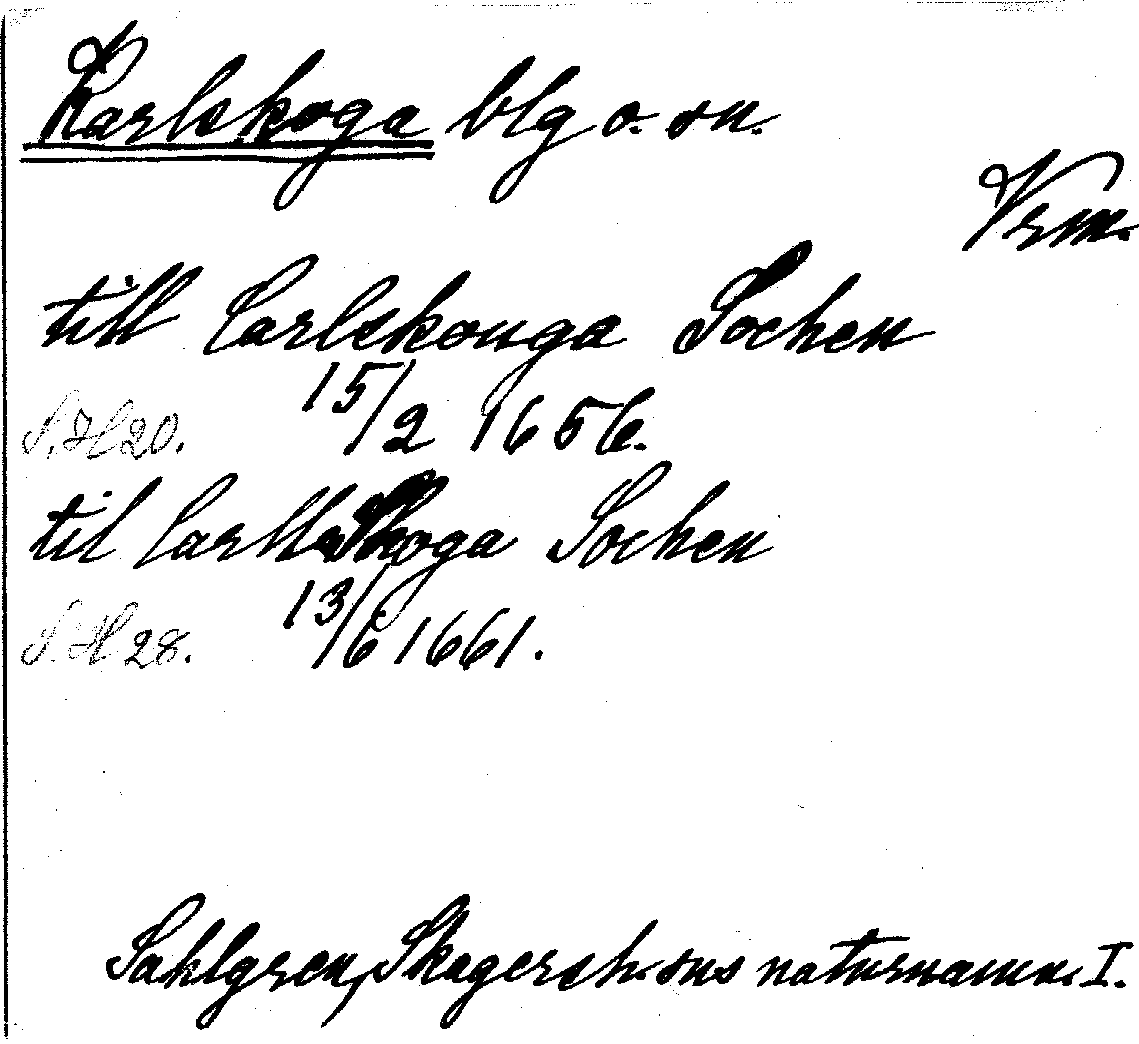 Karlskoga blg o. sn.
Vrm.
till Carlskouga Sochen
15/2 1656.
S.H 20.
til Carlls Skoga Sochen
13/6 1661.
S.H 28.
Sahlgren, Skagersh. sns naturnamn. I.